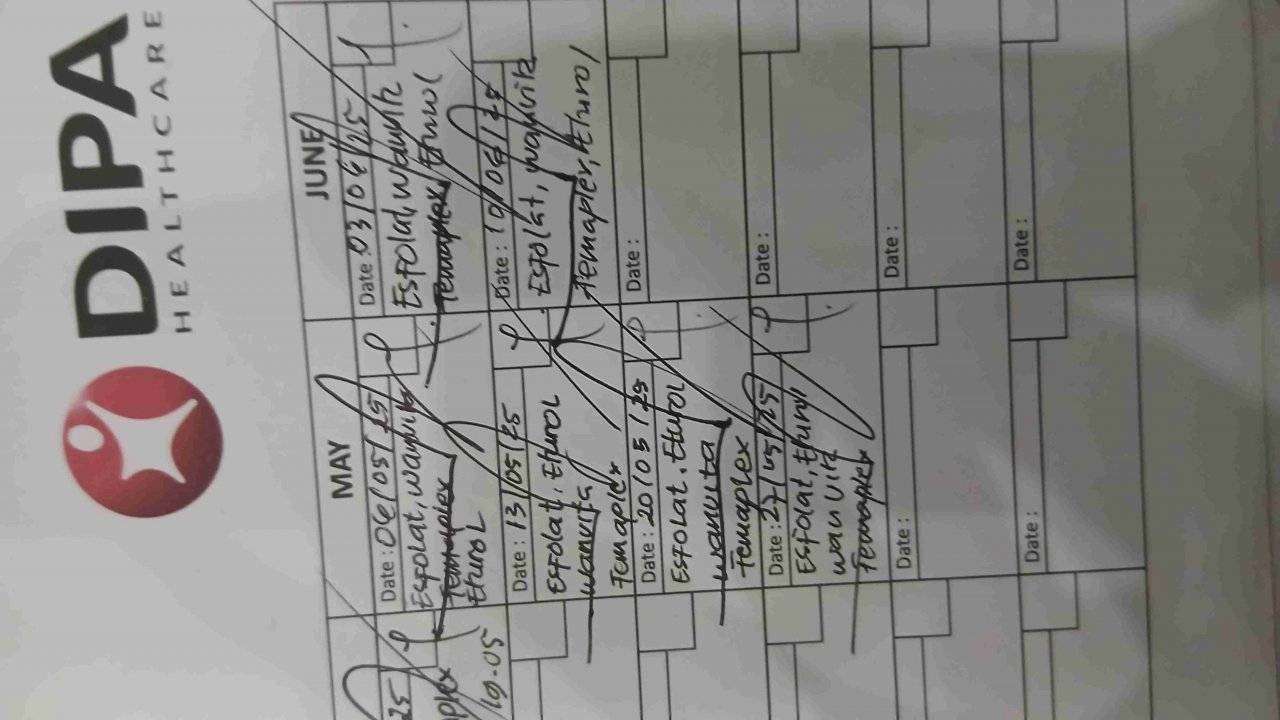 DIPA
HEALTHCARE
MAY
JUNE
25
plex
19.05
Date : 06/05/25
Esfolat, wanvita
Femaplex
Eturol
Date : 13/05/25
Esfolat, Eturol
wanvita
Femaplex
Date : 20/05/25
Esfolat. Eturol
wanvita
Femaplex
Date : 27/05/25
Esfolat, Eturol
wanvita
Femaplex
Date :
Date :
Date : 03/06/25
Esfolat, wanvita
Femaplex, Eturol
Date : 10/06/25
Esfolat, wanvita
Femaplex, Eturol
Date :
Date :
Date :
Date :